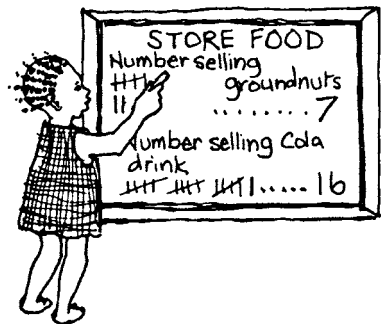 STORE FOOD
Number selling
groundnuts
........7
Number selling Cola
drink
1.....16